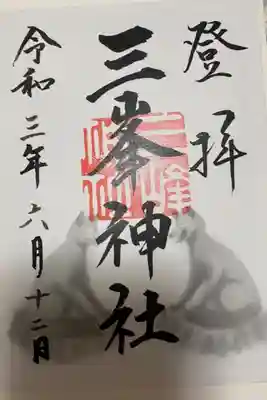 登拝
三峯神社
令和三年六月十二日